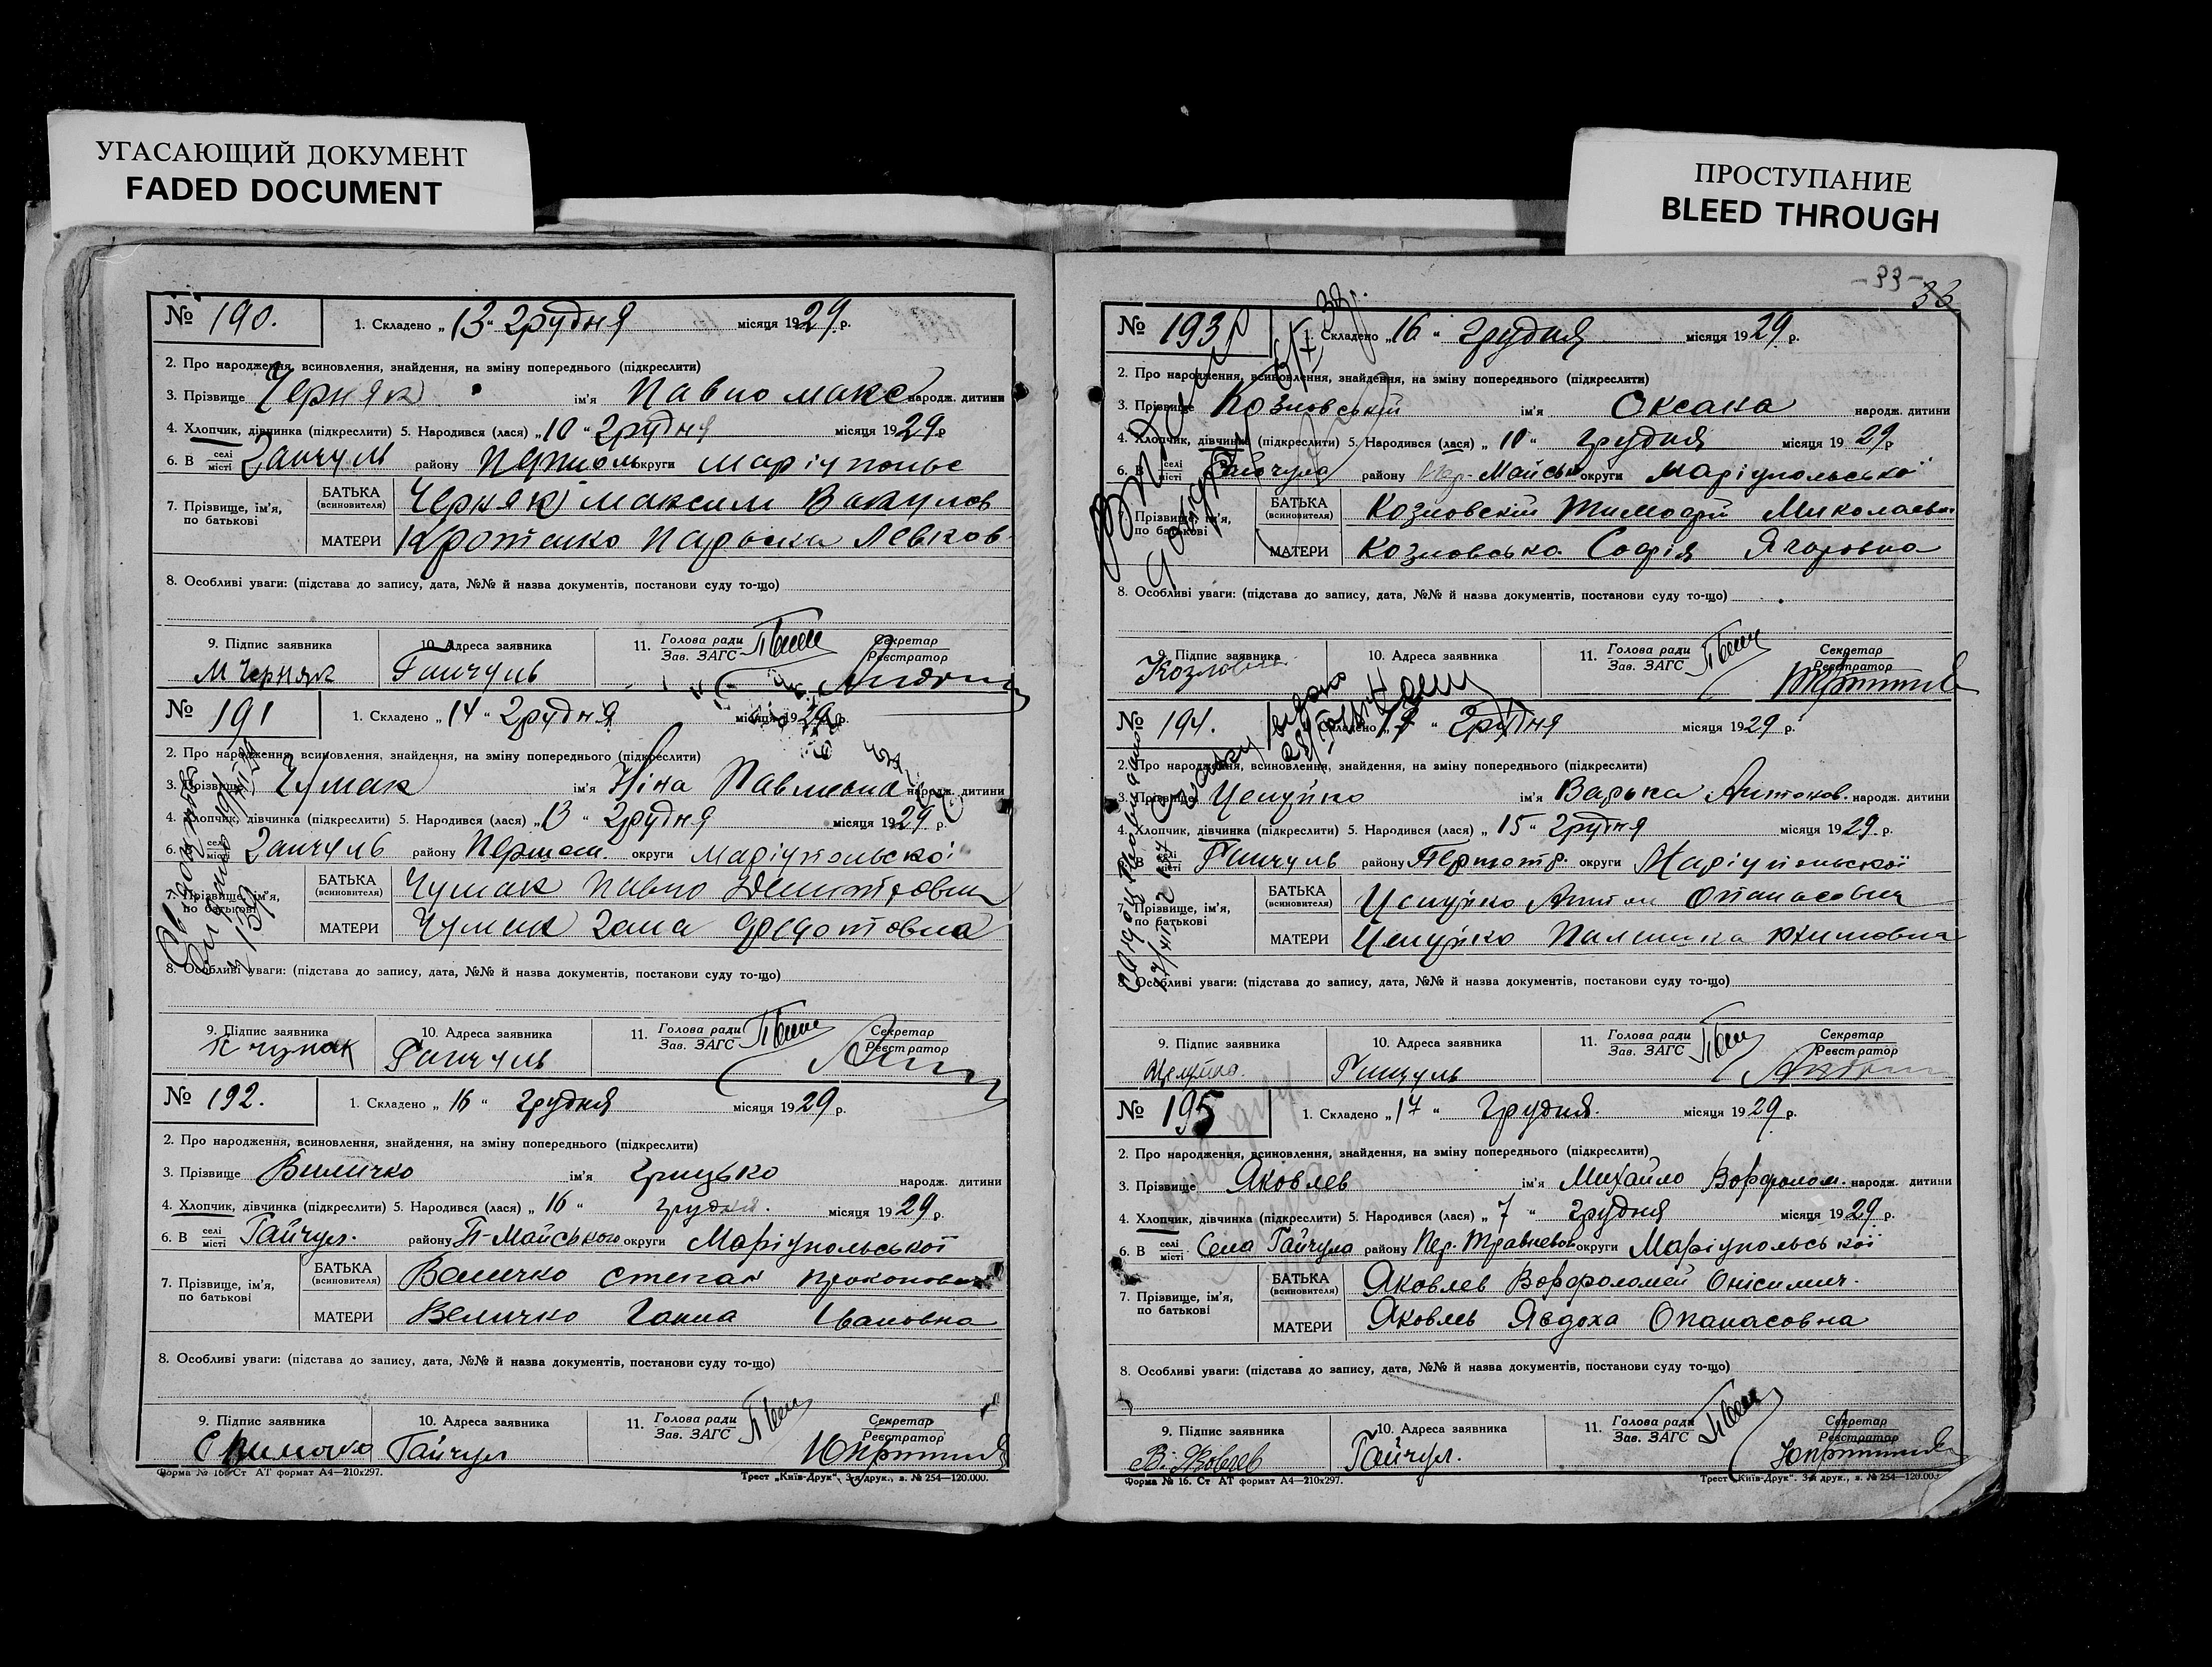 УГАСАЮЩИЙ ДОКУМЕНТ
FADED DOCUMENT
№ 190.
1. Складено „ 13 “ Грудня місяця 1929 р.
2. Про народження, всиновлення, знайдення, на зміну попереднього (підкреслити)
3. Прізвище Черняк ім'я Павло Макс народж. дитини
4. Хлопчик, дівчинка (підкреслити) 5. Народився (лася) „ 10 “ Грудня місяця 1929 р
6. В селі місті Гайчул району округи Маріупольс
7. Прізвище, ім'я, по батькові
БАТЬКА (всиновителя) Черняк Максим Вакулов
МАТЕРИ Кротенко Левков
8. Особливі уваги: (підстава до запису, дата, №№ й назва документів, постанови суду то-що)
9. Підпис заявника 10. Адреса заявника 11. Голова ради Зав. ЗАГС Секретар Реєстратор
М Черняк Гайчуль
№ 191
1. Складено „ 14 “ Грудня місяця 1929 р.
2. Про народження, всиновлення, знайдення, на зміну попереднього (підкреслити)
3. Прізвище Чумак ім'я Ніна Павлівна народж. дитини
4. Хлопчик, дівчинка (підкреслити) 5. Народився (лася) „ 13 “ Грудня місяця 1929 р.
6. В селі місті Гайчуль району Першом. округи Маріупольскої
7. Прізвище, ім'я, по батькові
БАТЬКА (всиновителя) Чумак Павло
МАТЕРИ Чумак Федотовна
8. Особливі уваги: (підстава до запису, дата, №№ й назва документів, постанови суду то-що)
9. Підпис заявника 10. Адреса заявника 11. Голова ради Зав. ЗАГС Секретар Реєстратор
П Чумак Гайчуль
№ 192.
1. Складено „ 16 “ Грудня місяця 1929 р.
2. Про народження, всиновлення, знайдення, на зміну попереднього (підкреслити)
3. Прізвище Величко ім'я Грицько народж. дитини
4. Хлопчик, дівчинка (підкреслити) 5. Народився (лася) „ 16 “ Грудня. місяця 1929 р.
6. В селі місті Гайчул. району П-Майського округи Маріупольської
7. Прізвище, ім'я, по батькові
БАТЬКА (всиновителя) Величко Степан
МАТЕРИ Величко Ганна Івановна
8. Особливі уваги: (підстава до запису, дата, №№ й назва документів, постанови суду то-що)
9. Підпис заявника 10. Адреса заявника 11. Голова ради Зав. ЗАГС Секретар Реєстратор
С Величко Гайчул
Форма № 16. Ст АТ формат А4—210х297. Трест „Київ-Друк“. 3-я друк., з. № 254—120.000.
ПРОСТУПАНИЕ
BLEED THROUGH
-33-
№ 193
1. Складено „ 16 “ Грудня місяця 1929 р.
2. Про народження, всиновлення, знайдення, на зміну попереднього (підкреслити)
3. Прізвище Козловській ім'я Оксана народж. дитини
4. Хлопчик, дівчинка (підкреслити) 5. Народився (лася) „ 10 “ Грудня місяця 1929 р
6. В селі місті Гайчула району округи Маріупольської
7. Прізвище, ім'я, по батькові
БАТЬКА (всиновителя) Козловскій Тимофій
МАТЕРИ Козловсько Софія Ягоровна
8. Особливі уваги: (підстава до запису, дата, №№ й назва документів, постанови суду то-що)
9. Підпис заявника 10. Адреса заявника 11. Голова ради Зав. ЗАГС Секретар Реєстратор
№ 194.
1. Складено „ 17 “ Грудня місяця 1929 р.
2. Про народження, всиновлення, знайдення, на зміну попереднього (підкреслити)
3. Прізвище Цепуйко ім'я Варька Антонов. народж. дитини
4. Хлопчик, дівчинка (підкреслити) 5. Народився (лася) „ 15 “ Грудня місяця 1929 р.
6. В селі місті Гайчуль району округи Маріупольської
7. Прізвище, ім'я, по батькові
БАТЬКА (всиновителя) Цепуйко Антон Опанасович
МАТЕРИ Цепуйко
8. Особливі уваги: (підстава до запису, дата, №№ й назва документів, постанови суду то-що)
9. Підпис заявника 10. Адреса заявника 11. Голова ради Зав. ЗАГС Секретар Реєстратор
Гайчуль
№ 195
1. Складено „ 17 “ Грудня. місяця 1929 р.
2. Про народження, всиновлення, знайдення, на зміну попереднього (підкреслити)
3. Прізвище Яковлев ім'я Михайло Ворфолом. народж. дитини
4. Хлопчик, дівчинка (підкреслити) 5. Народився (лася) „ 7 “ Грудня місяця 1929 р.
6. В селі місті Села Гайчула району округи Маріупольської
7. Прізвище, ім'я, по батькові
БАТЬКА (всиновителя) Яковлев Ворфоломей Онісимич.
МАТЕРИ Яковлев Явдоха Опанасовна
8. Особливі уваги: (підстава до запису, дата, №№ й назва документів, постанови суду то-що)
9. Підпис заявника 10. Адреса заявника 11. Голова ради Зав. ЗАГС Секретар Реєстратор
В. Яковлев Гайчул.
Форма № 16. Ст АТ формат А4—210х297. Трест „Київ-Друк“. 3-я друк., з. № 254—120.000.